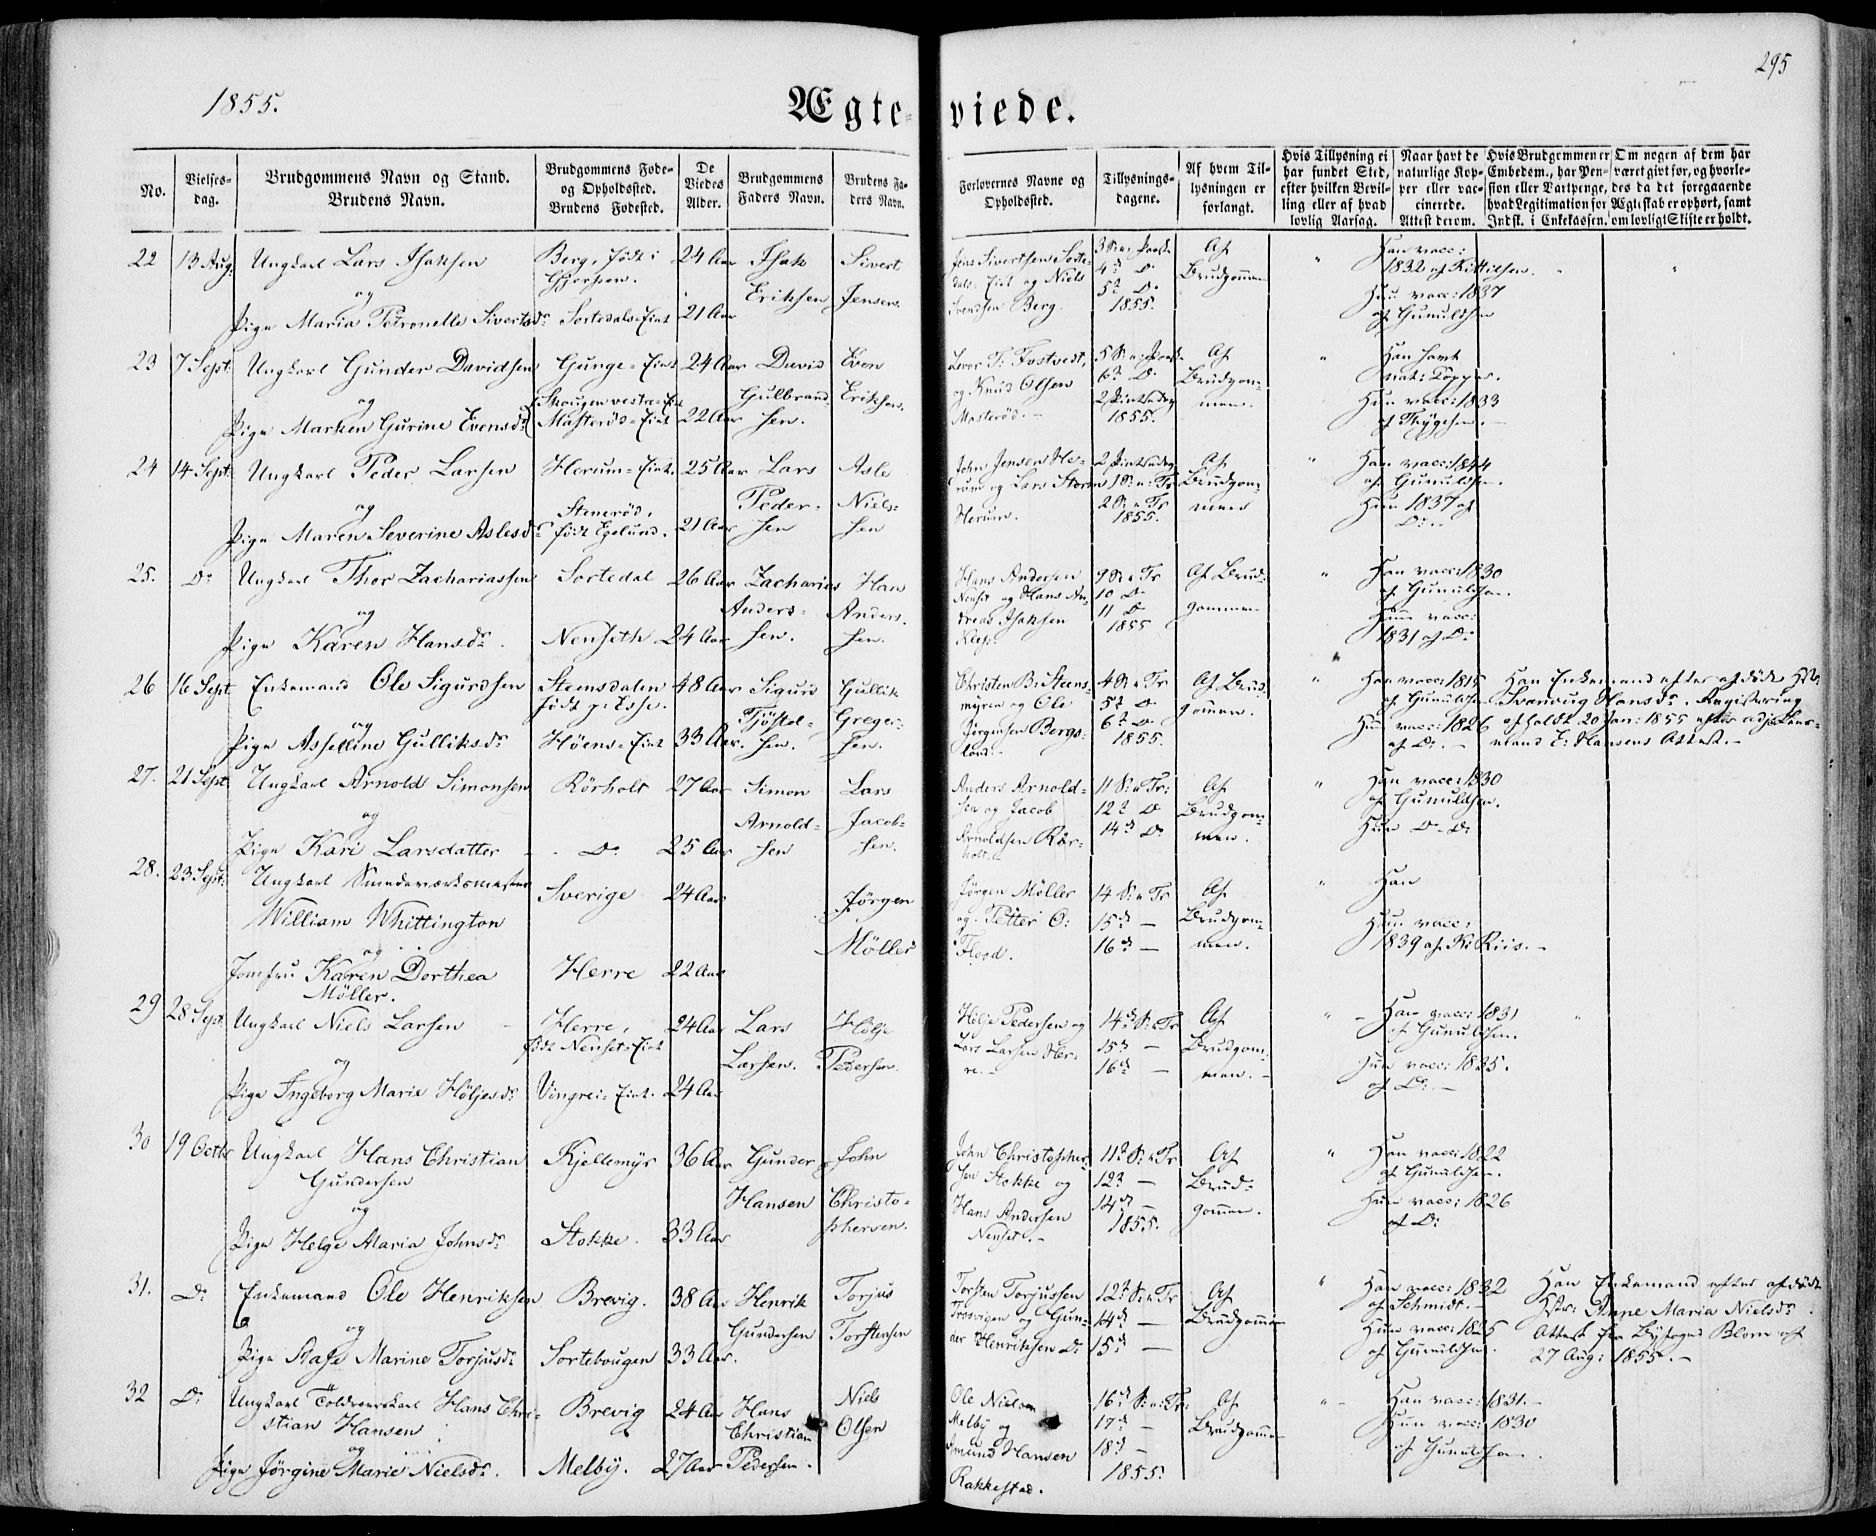 295
1855.
Ægteviede.
No.
Vielsesdag.
Brudgommens Navn og Stand.
Brudens Navn.
Brudgommens Føde- og Opholdssted.
Brudens Fødested.
De Viedes Alder.
Brudgommens Faders Navn.
Brudens Faders Navn.
Forlovernes Navne og Opholdssted.
Tillysningsdagene.
Af hvem Tillysningen er forlangt.
Hvis Tillysning ei har fundet Sted, efter hvilken Bevilling eller af hvad lovlig Aarsag.
Naar havt de naturlige Kopper eller vaccinerede. Attest derom.
Hvis Brudgommen er Embedsm., har Pension eller Vartpenge, hvad Legitimation for Indsk. i Enkekassen.
Om nogen af dem har været gift før, og hvorledes da det foregaaende Ægteskab er ophørt, samt om lovligt Skifte er holdt.
22 13 Aug: Ungkarl Lars Isaksen Berg, født i Gjerpen. 24 Aar Isak Eriksen Sivert Jensen.
og
Pige Maria Petronelle Sivertsdr Sortedals-Eiet 21 Aar
Jens Sivertsen Sortedals-Eiet og Niels Svendsen Berg.
4de Do
5te Do
1855.
Af Brudgommen
Han vacc: 1832 af Kittilsen.
Hun vacc: 1837 af Gunuldsen
23 7 Sept: Ungkarl Gunder Davidsen Gunge-Eiet 24 Aar David Gulbrandsen. Even Eriksen.
og
Skougen vestre-Eiet
Pige Marken Gurine Evensdr Masterød-Eiet 22 Aar
og Knud Olsen Masterød.
6te Do
1855.
Af Brudgommen.
Han havt nat: Kopper.
Hun vacc: 1833 af Thygesen.
24 14 Sept: Ungkarl Peder Larsen Herum-Eiet. 25 Aar Lars Pedersen Asle Nielsen
og
Pige Maren Severine Aslesdr Stenerød, født Egelund. 21 Aar
John Jensen Herum og Lars Storm Herum.
1 S: e: Tr
2 S: e Tr
1855.
Af Brudgommen
Han vacc: 1844 af Gunuldsen.
Hun 1837 af Do.
25. Do Ungkarl Thor Zachariassen Sortedal 26 Aar Zacharias Andersen. Hans Andersen.
og
Pige Karen Hansdr. Nenseth 24 Aar
Hans Andersen Nenset og Hans Andreas Isaksen Klep.
9 S: e Tr
10 Do
11 Do
1855
Af Brudgommen
Han vacc: 1830 af Gunuldsen.
Hun vacc: 1831 af Do
26 16 Sept. Enkemand Ole Sigurdsen Stensdalen 48 Aar Sigurd Gullik Gregersen.
og
Pige Asseline Gulliksdr Høens-Eiet 33 Aar.
Christen B. Steensmyren og Ole Jørgensen Bergsland.
4 S: e Tr
5te Do
6te Do
1855.
Af Brudgommen.
Han vacc: 1815 af Gunuldsen
Hun vacc: 1826 af Do.
Han Enkemand efter afdøde Hstr: Svanvug Hansdr. Registrering afholdt 20 Jan: 1855 efter Lensmand E: Hansens Attest.
27. 21 Sept Ungkarl Arnold Simonsen Rörholt 27 Aar Simon Arnoldsen Lars Jacobsen.
og
Pige Kari Larsdatter Do 25 Aar
Anders Arnoldsen og Jacob Arnoldsen Rörholt.
11 S: e Tr:
12te Do
14de Do
Af Brudgommen.
Han vacc: 1830 af Gunuldsen.
Hun Do Do
28. 23 Sept: Ungkarl William Whittington Sverige 24 Aar Jørgen Møller
og
Jomfru Karen Dorthea Møller. Herre 22 Aar
Jørgen Møller og Petter O: Flood.
14 S: e Tr
15de
16de
Af Brudgommen.
Han
Hun vacc: 1839 af Kr Riis.
29 28 Sept. Ungkarl Niels Larsen Herre, født Nenset-Eiet 24 Aar Lars Larsen. Hölje Pedersen.
og
Pige Ingeborg Marie Höljesdr Vingrei-Eiet. 24 Aar
Hölje Pedersen og Lars Larsen Herre.
14de S: e Tr
15de
16de
Af Brudgommen.
Han vacc: 1831 af Gunuldsen.
Hun vacc: 1835. af Do.
30 19 Octbr Ungkarl Hans Christian Gundersen Kjellemyr 36 Aar Gunder Hansen John Christophersen.
og
Pige Helge Maria Johnsdr Stokke. 33 Aar
John Christophersen Stokke og Hans Andersen Nenset.
11te S: e Tr
12te
14de
1855.
Af Brudgommen.
Han vacc: 1822 af Gunuldsen.
Hun vacc: 1826 af Do:
31. Do Enkemand Ole Henriksen Brevig. 38 Aar Henrik Gundersen Torjus Torstensen
og
Pige Marine Torjusdr Sortebougen 33 Aar.
Torsten Torjussen og Gunder Henriksen Do
12te S: e Tr
14de
15de
Af Brudgommen
Han vacc: 1832 af Schmidt.
Hun vacc: 1825 af Gunuldsen
Han Enkemand efter afdøde Hstr: Anne Maria Nielsdr. Attest fra Byfoged Blom af 27 Aug: 1855.
32 Do Ungkarl Toldroerskarl Hans Christian Hansen Brevig 24 Aar Hans Christian Pedersen. Niels Olsen
og
Pige Jørgine Marie Nielsdr. Melby. 27 Aar
Ole Nielsen Melby og Amund Hansen Rakkestad.
16de S: e: Tr:
17de
18de
1855.
Af Brudgommen
Han vacc: 1831.
Hun vacc: 1830 af Gunuldsen.